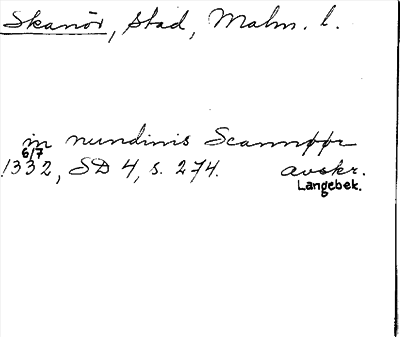 Skanör, stad, Malm. l.
in nundinis Scannør
6/7
1332, SD 4, s. 274. avskr.
Langebek.